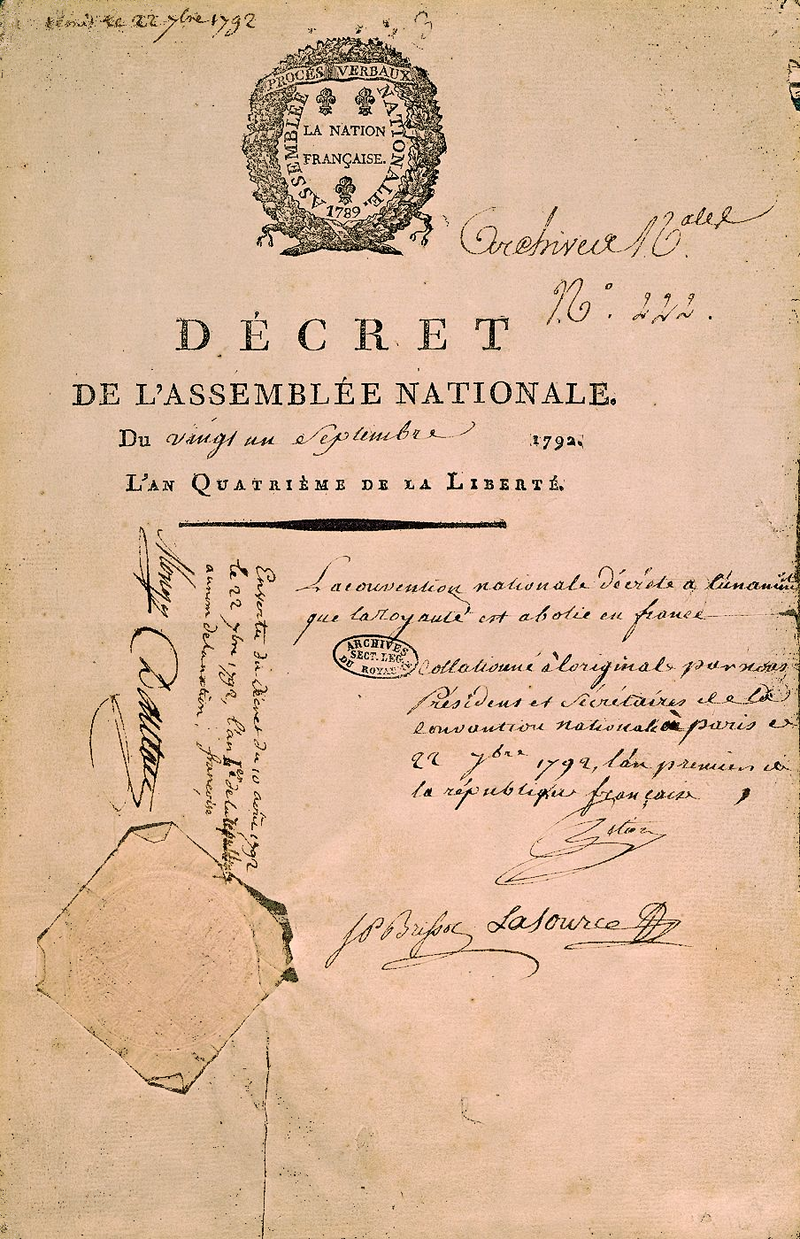 le 22 7bre 1792
PROCÈS VERBAUX
ASSEMBLÉE NATIONALE.
LA NATION
FRANÇAISE.
1789
Archives Nales
N° 222.
DÉCRET
DE L'ASSEMBLÉE NATIONALE.
Du vingt un Septembre 1792.
L'AN QUATRIÈME DE LA LIBERTÉ.
La convention nationale décrète a l'unanimité
que la Royauté est abolie en france
ARCHIVES
SECT. LEG.
DU ROYAUME
Collationné à l'original par nous
Présidens et Secrétaires de la
Convention nationale à paris ce
22 7bre 1792, l'an premier de
la république françaises
Petion
JP Brissot Lasource
En vertu du décret du 10 août 1792
le 22 7bre 1792, l'an 1er de la république
au nom de la nation française
Monge
Danton